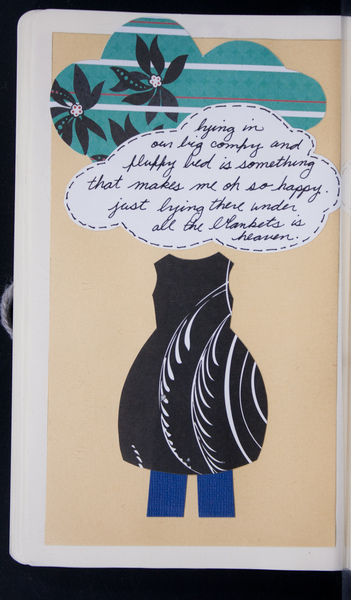 lying in
our big comfy and
fluffy bed is something
that makes me oh so happy.
just lying there under
all the blankets is
heaven.